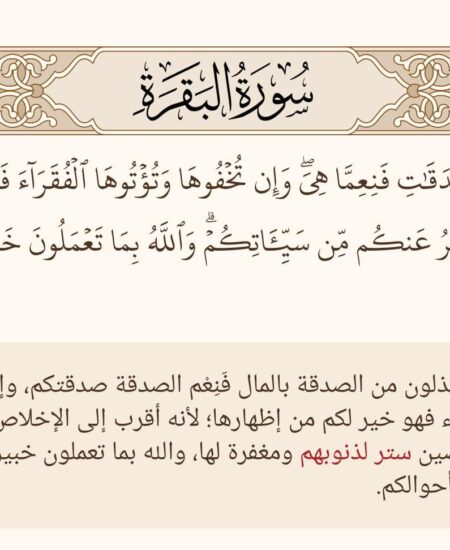 سُورَةُ البَقَرَةِ
دَقَٰتِ فَنِعِمَّا هِيَۖ وَإِن تُخۡفُوهَا وَتُؤۡتُوهَا ٱلۡفُقَرَآءَ فَ
رُ عَنكُم مِّن سَيِّـَٔاتِكُمۡۗ وَٱللَّهُ بِمَا تَعۡمَلُونَ خَ
ذلون من الصدقة بالمال فَنِعْم الصدقة صدقتكم، وإ
ء فهو خير لكم من إظهارها؛ لأنه أقرب إلى الإخلاص
صين ستر لذنوبهم ومغفرة لها، والله بما تعملون خبير
أحوالكم.